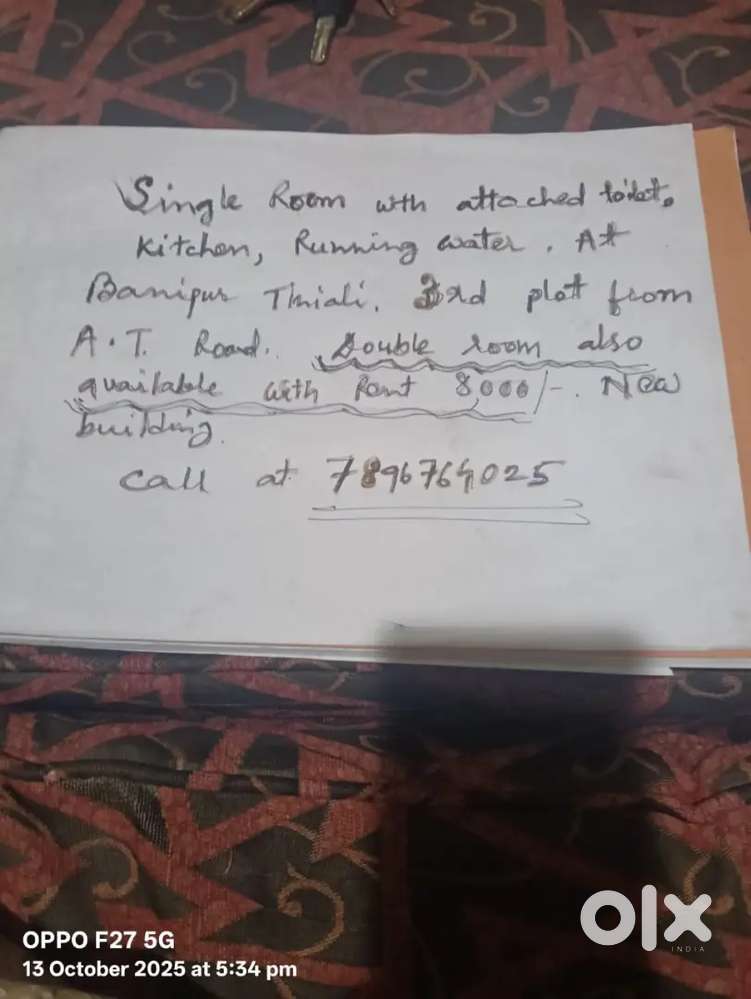 Single Room wth attached toilet,
Kitchen, Running water. At
Banipur Thiali. 3rd plot from
A.T. Road. Double room also
available with Rent 8,000/-. New
building.
Call at 7896764025
OPPO F27 5G
13 October 2025 at 5:34 pm
olx
INDIA